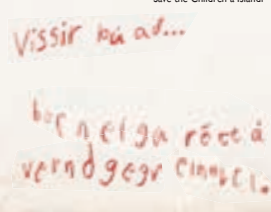 Save the Children á Íslandi
Vissir þú að...
börn eiga rétt á
vernd gegn einelti.